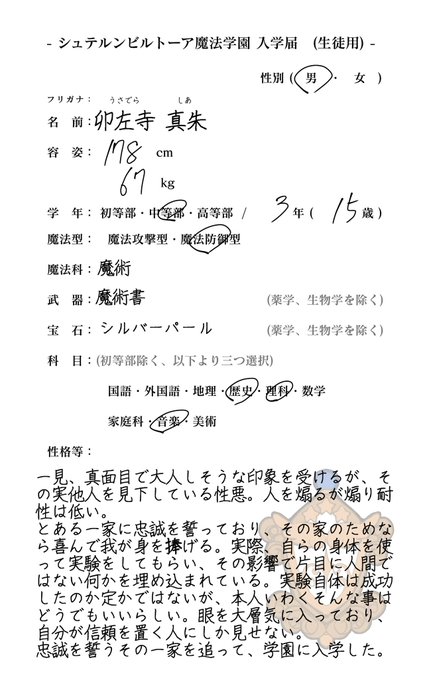 - シュテルンビルトーア魔法学園 入学届　(生徒用) -
性別 ( 男 ・ 女 )
フリガナ： うさでら しあ
名　前：卯左寺 真朱
容　姿：178 cm
67 kg
学　年：初等部・中等部・高等部 / 3年 ( 15歳 )
魔法型：魔法攻撃型・魔法防御型
魔法科：魔術
武　器：魔術書 (薬学、生物学を除く)
宝　石：シルバーパール (薬学、生物学を除く)
科　目：(初等部除く、以下より三つ選択)
国語・外国語・地理・歴史・理科・数学
家庭科・音楽・美術
性格等：
一見、真面目で大人しそうな印象を受けるが、そ
の実他人を見下している性悪。人を煽るが煽り耐
性は低い。
とある一家に忠誠を誓っており、その家のためな
ら喜んで我が身を捧げる。実際、自らの身体を使
って実験をしてもらい、その影響で片目に人間で
はない何かを埋め込まれている。実験自体は成功
したのか定かではないが、本人いわくそんな事は
どうでもいいらしい。眼を大層気に入っており、
自分が信頼を置く人にしか見せない。
忠誠を誓うその一家を追って、学園に入学した。